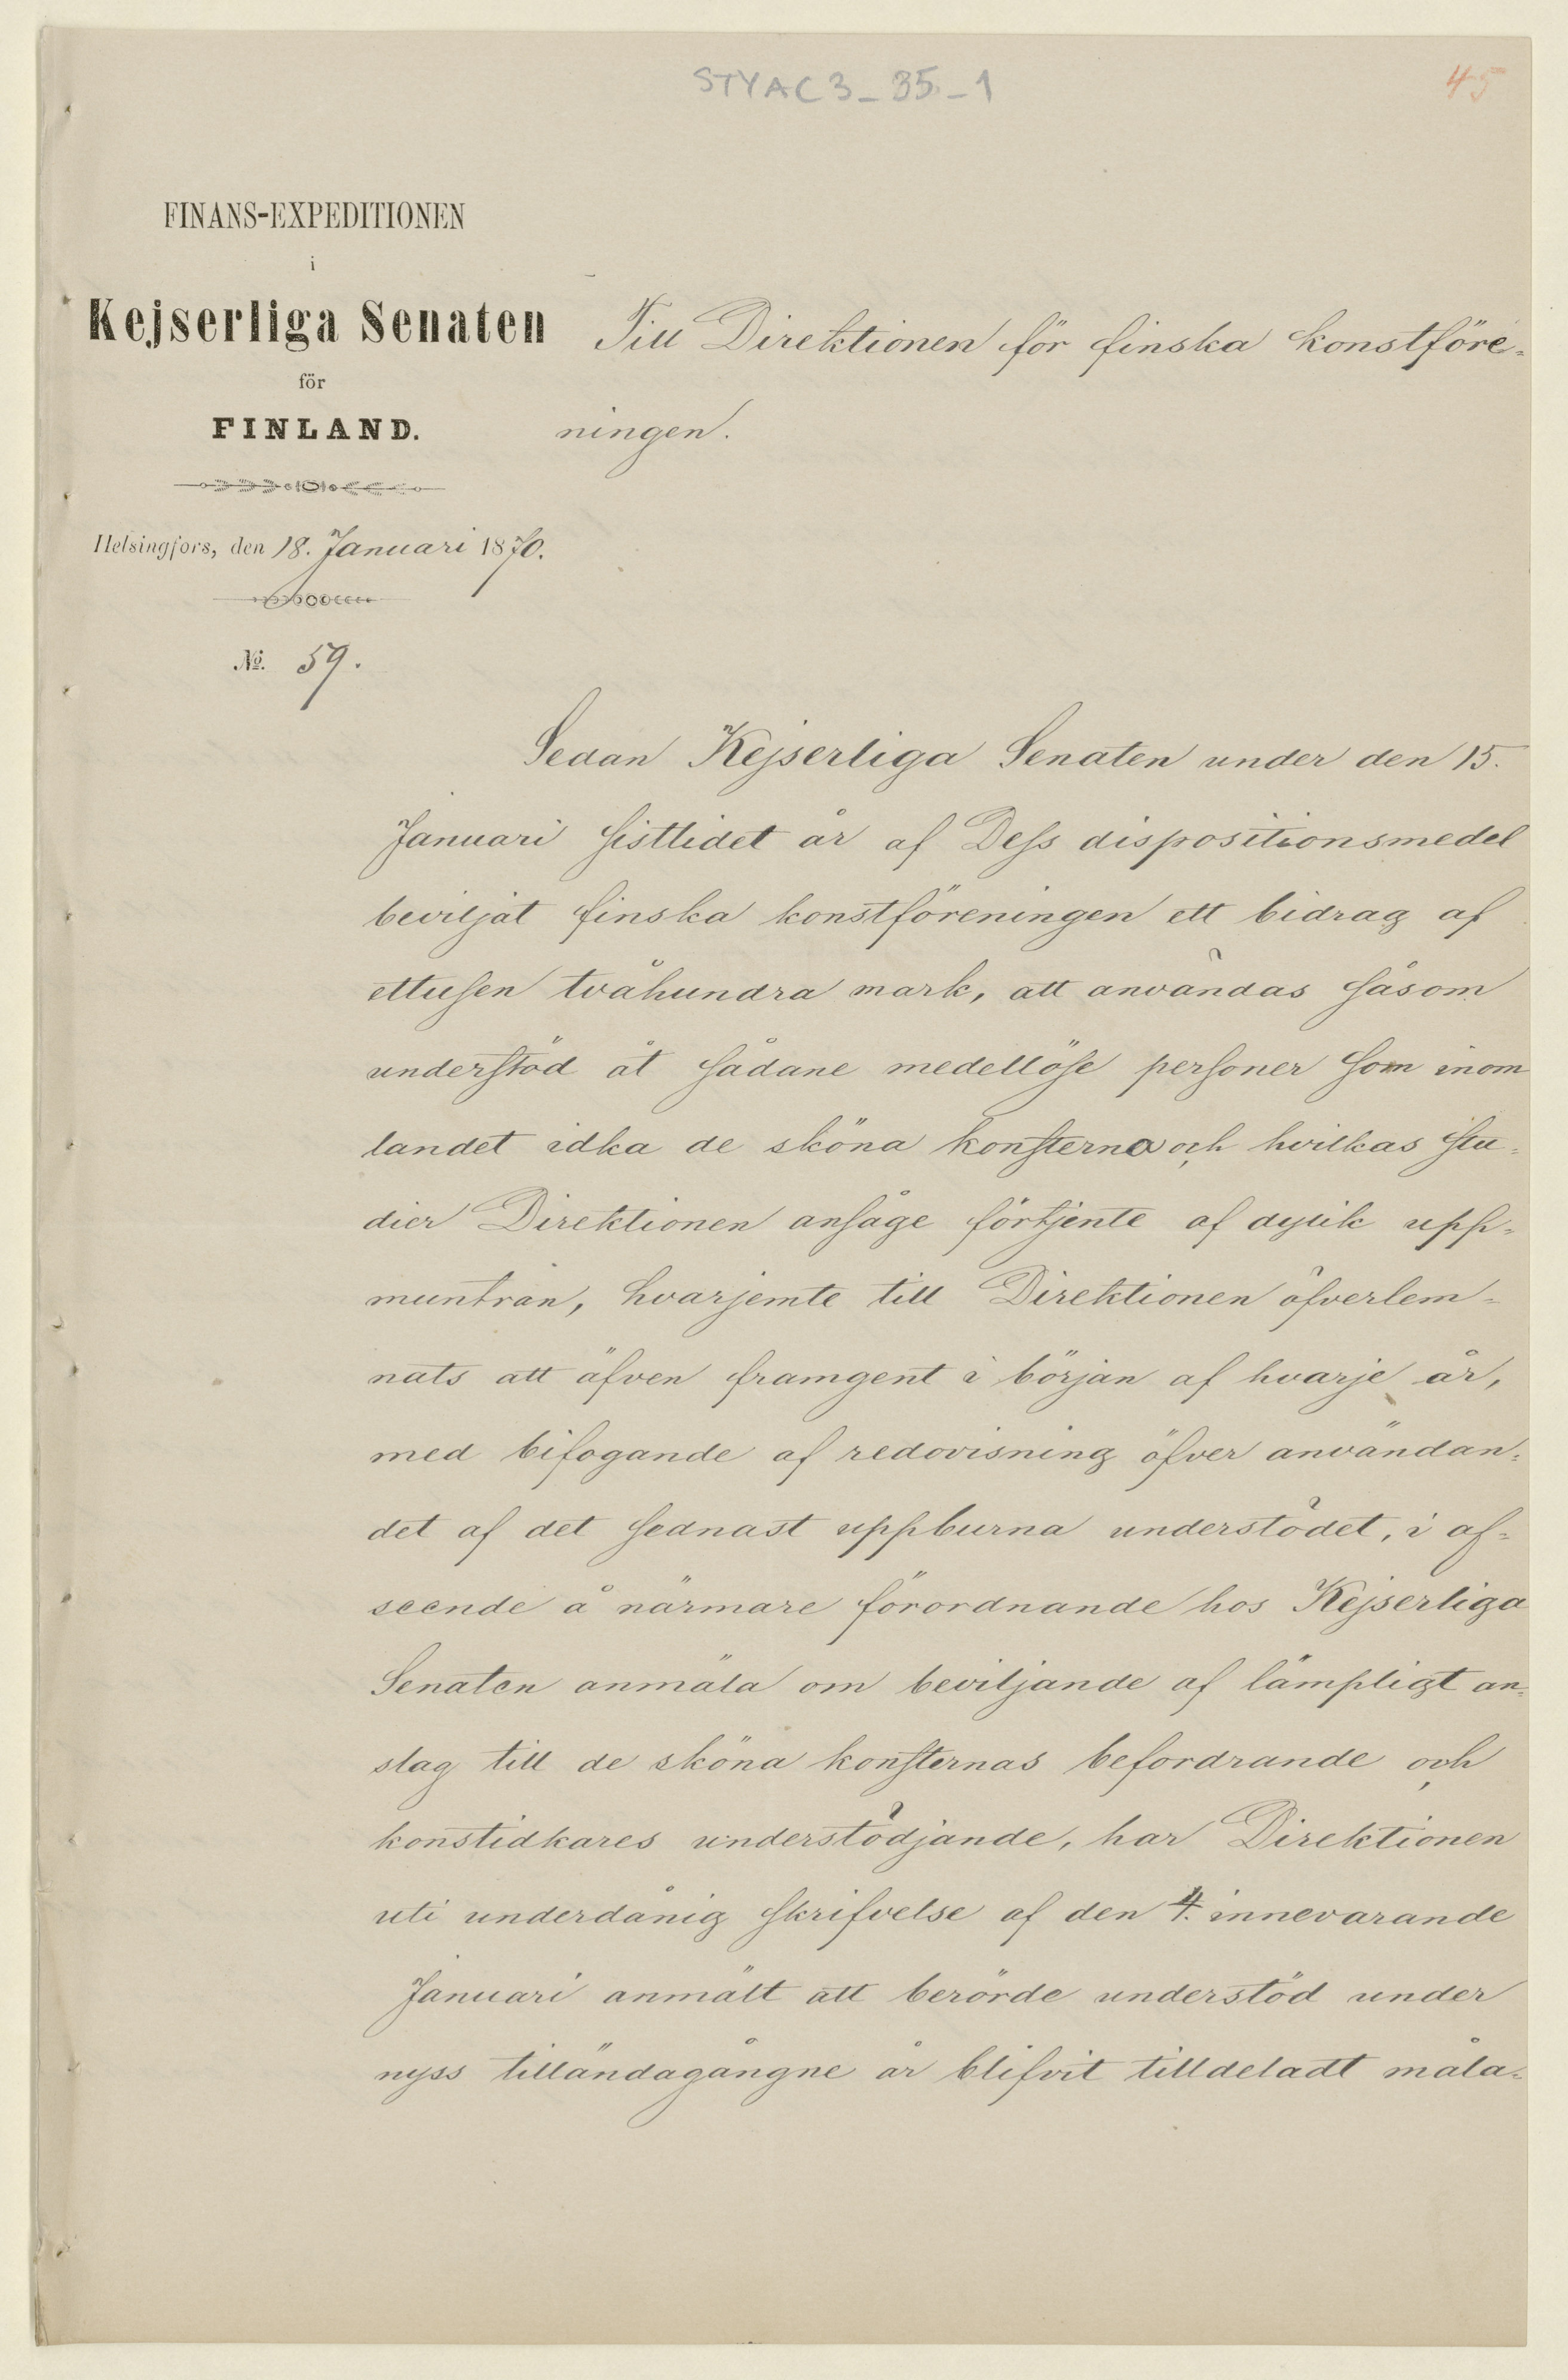 STYAC3_35_1
45
FINANS-EXPEDITIONEN
i
Kejserliga Senaten
för
FINLAND.
Helsingfors, den 18. Januari 1870.
№. 59.
Till Direktionen för finska konstföre-
ningen.
Sedan Kejserliga Senaten under den 15.
Januari sistlidet år af Dess dispositionsmedel
beviljat finska konstföreningen ett bidrag af
ettusen tvåhundra mark, att användas såsom
understöd åt sådane medellöse personer som inom
landet idka de sköna konsterna och hvilkas stu-
dier Direktionen ansåge förtjente af dylik upp-
muntran, hvarjemte till Direktionen öfverlem-
nats att äfven framgent i början af hvarje år,
med bifogande af redovisning öfver användan-
det af det sednast uppburna understödet, i af-
seende å närmare förordnande hos Kejserliga
Senaten anmäla om beviljande af lämpligt an-
slag till de sköna konsternas befordrande och
konstidkares understödjande, har Direktionen
uti underdånig skrifvelse af den 4. innevarande
Januari anmält att berörde understöd under
nyss tilländagångne år blifvit tilldeladt måla-